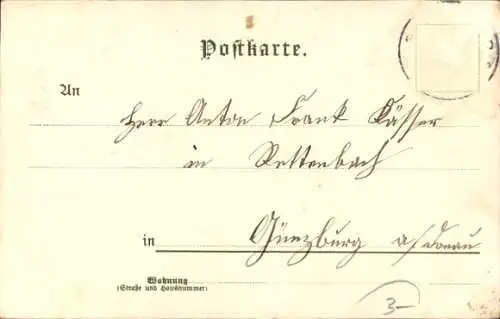 Postkarte.
An
Herr Anton Frank Kässer
in Rettenbach
in Günzburg a/Donau
Wohnung
(Straße und Hausnummer)
3-